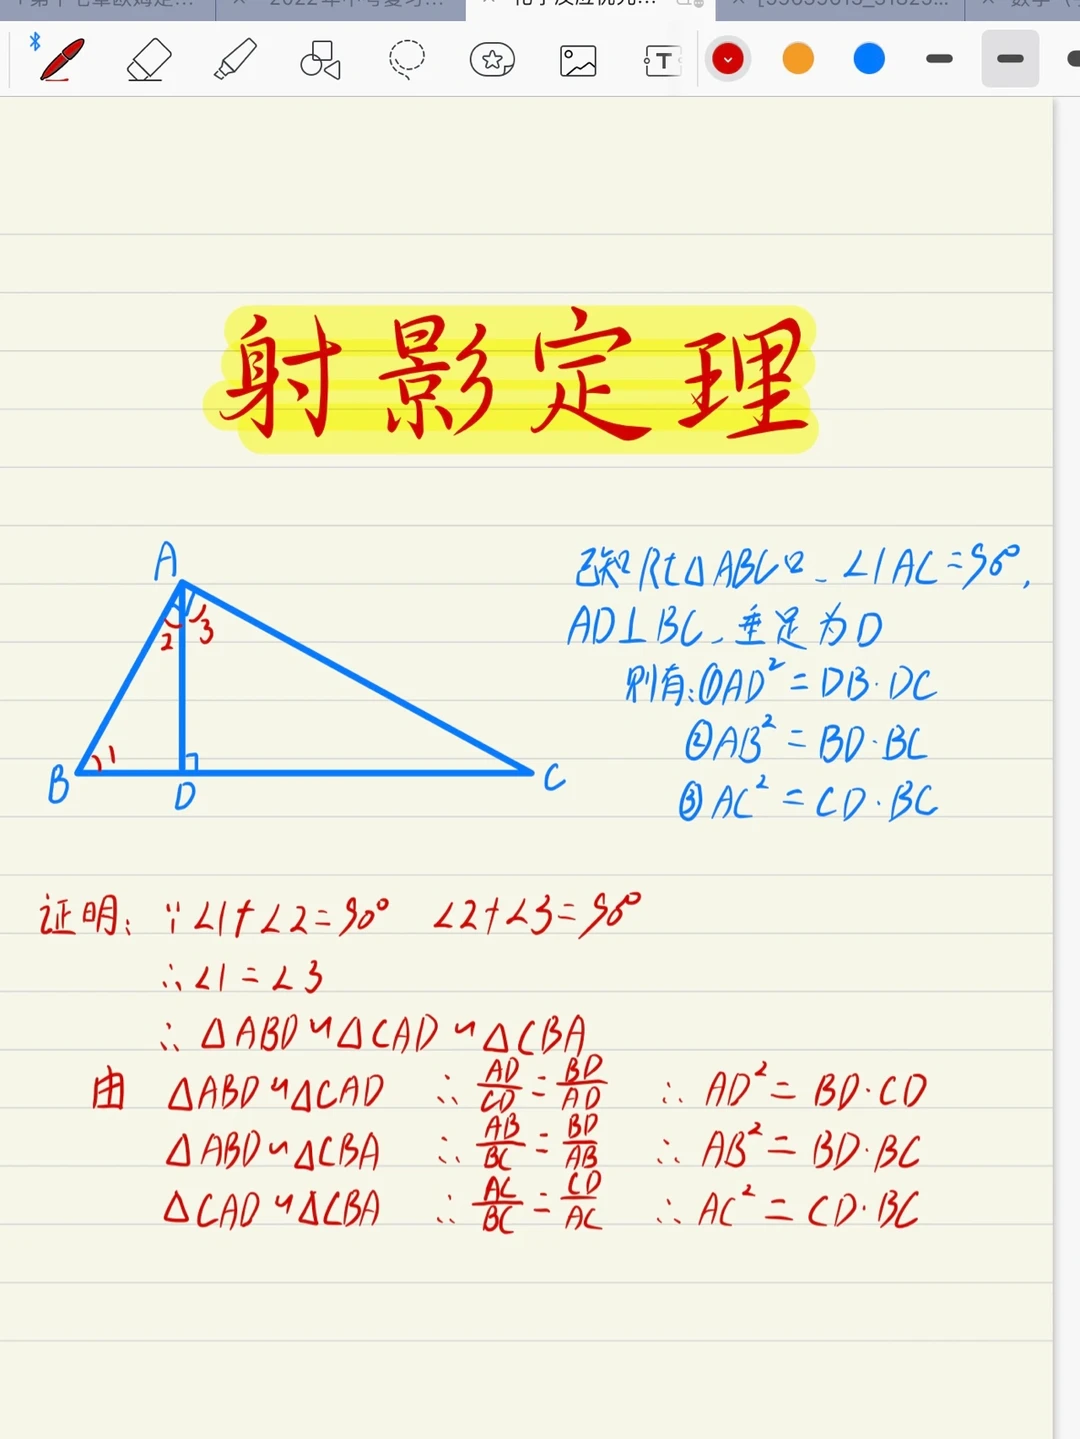 2022年中考复习...
射影定理
A
2 3
B 1 D C
已知Rt△ABC中、∠BAC=90°,
AD⊥BC、垂足为D
则有:①AD²=DB·DC
②AB²=BD·BC
③AC²=CD·BC
证明: ∵∠1+∠2=90° ∠2+∠3=90°
∴∠1=∠3
∴△ABD∽△CAD∽△CBA
由 △ABD∽△CAD ∴AD/CD=BD/AD ∴AD²=BD·CD
△ABD∽△CBA ∴AB/BC=BD/AB ∴AB²=BD·BC
△CAD∽△CBA ∴AC/BC=CD/AC ∴AC²=CD·BC